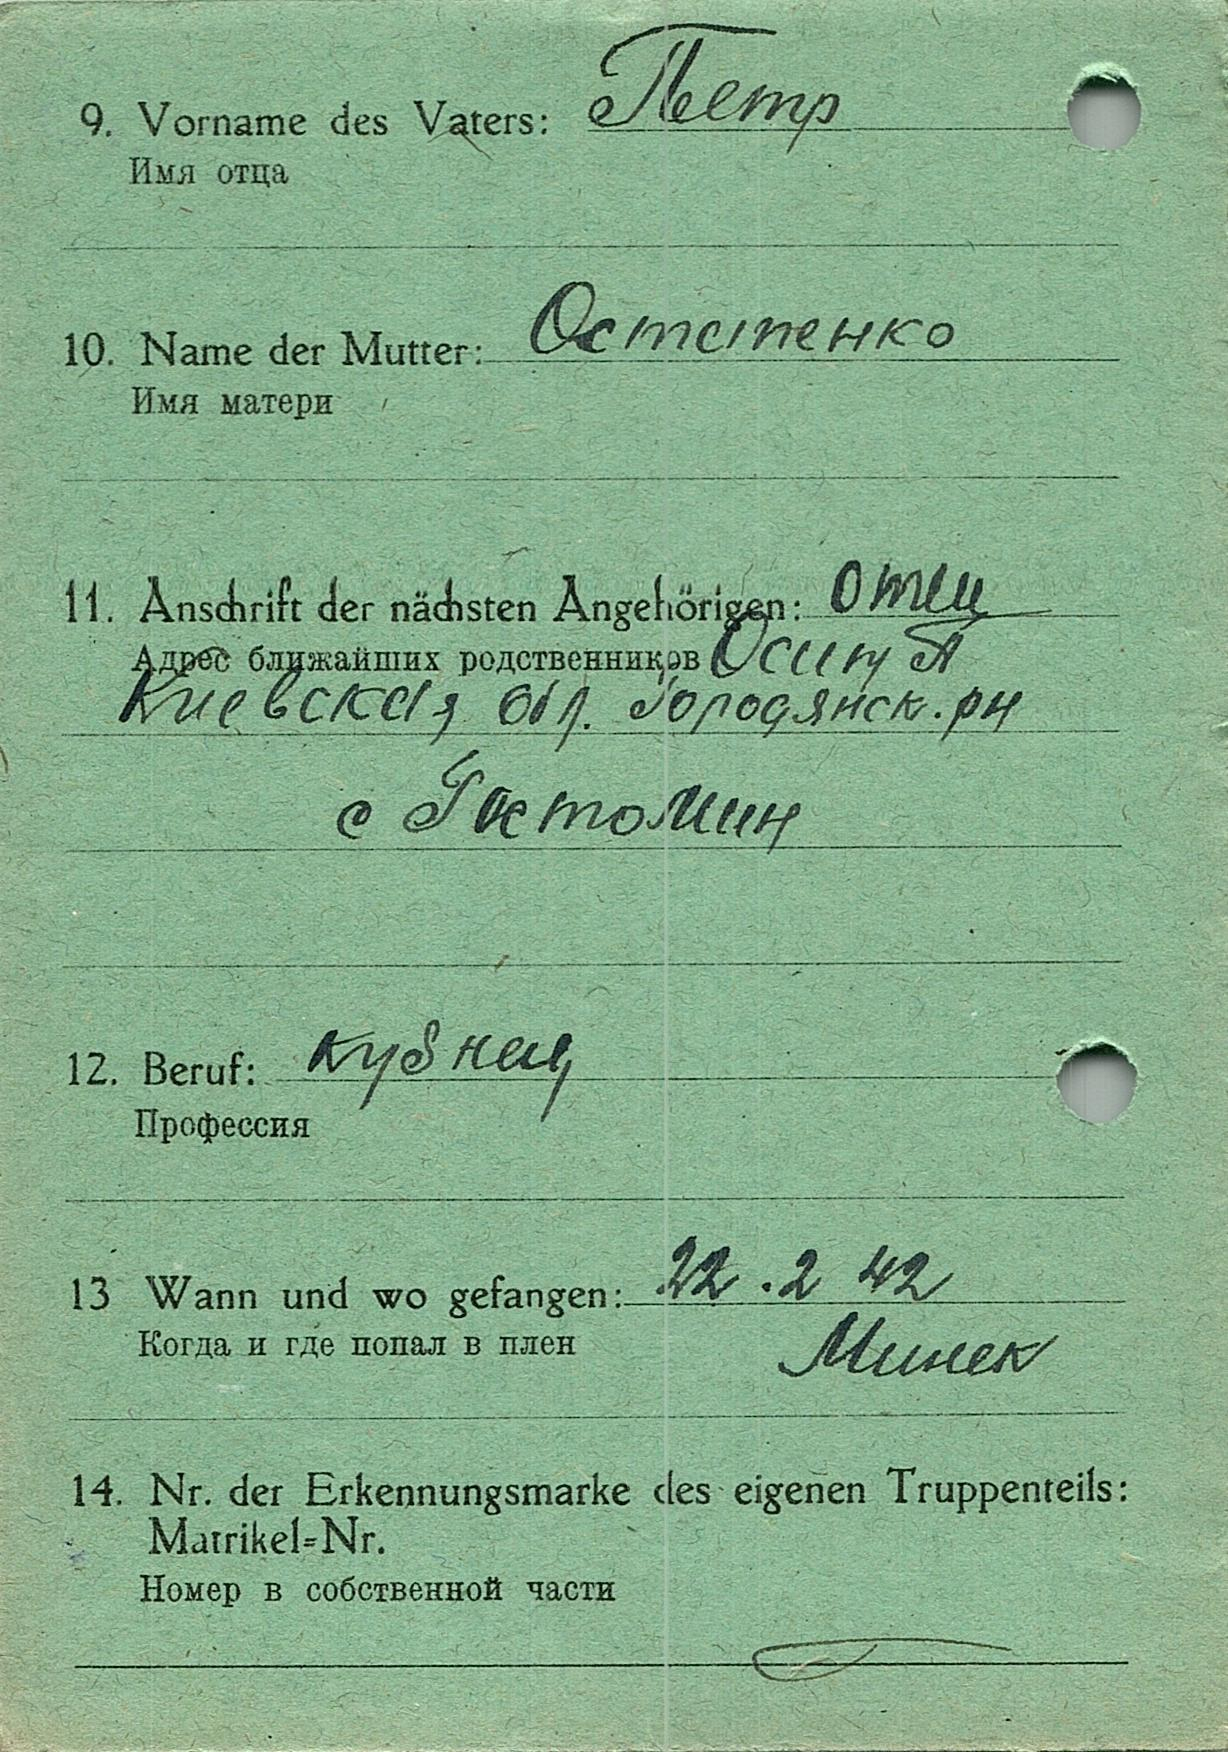 9. Vorname des Vaters: Петр
Имя отца
10. Name der Mutter: Остапенко
Имя матери
11. Anschrift der nächsten Angehörigen: отец
Адрес ближайших родственников П
Киевская обл. Городянск. рн
с Гостомин
12. Beruf: Кузнец
Профессия
13 Wann und wo gefangen: 22.2 42
Когда и где попал в плен Минск
14. Nr. der Erkennungsmarke des eigenen Truppenteils:
Matrikel=Nr.
Номер в собственной части